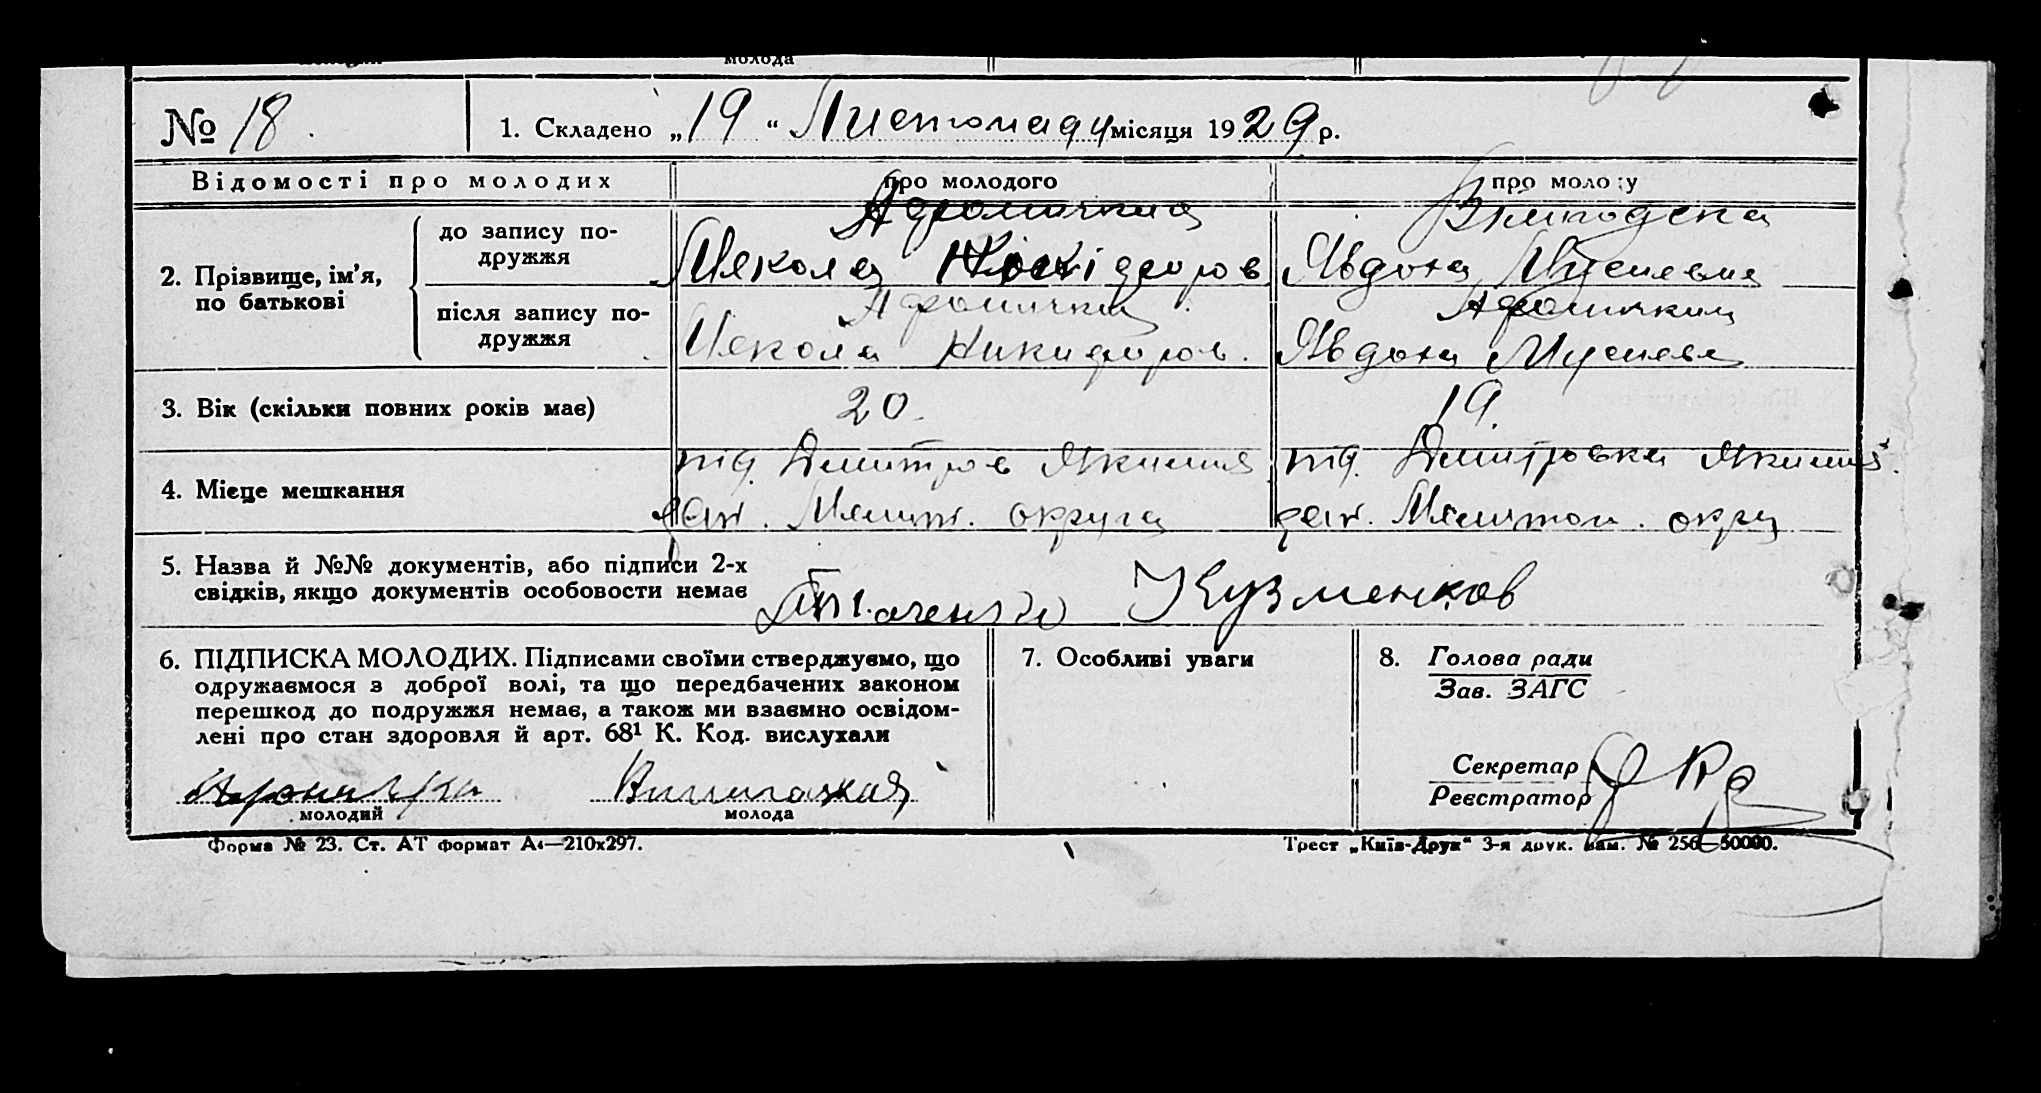 молода
№ 18.
1. Складено „19“ Листопаду місяця 1929 р.
Відомості про молодих
про молодого
про молоду
2. Прізвище, ім'я, по батькові
до запису подружжя
Микола
Явдоха Мусиевна
після запису подружжя
Микола Никифоров.
Явдоха Мусиевн
3. Вік (скільки повних років має)
20.
19.
4. Місце мешкання
Дмитров Якимів
Дмитровка Якимів.
рай. Меліт. округа
рай. Мелитоп. окру
5. Назва й №№ документів, або підписи 2-х
свідків, якщо документів особовости немає
Ткаченко Кузменков
6. ПІДПИСКА МОЛОДИХ. Підписами своїми стверджуємо, що
одружаємося з доброї волі, та що передбачених законом
перешкод до подружжя немає, а також ми взаємно освідом-
лені про стан здоровля й арт. 68¹ К. Код. вислухали
молодий
молода
7. Особливі уваги
8. Голова ради
Зав. ЗАГС
Секретар
Реєстратор
Форма № 23. Ст. АТ формат А4—210x297.
Трест „Київ-Друк“ 3-я друк. Зам. № 256—50000.